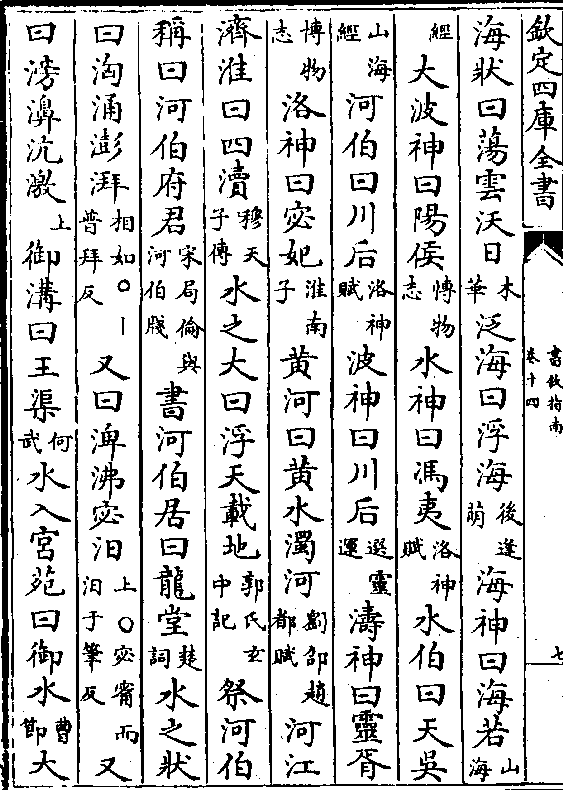 欽定四庫全書
書敘指南
卷十四
七
海狀曰蕩雲沃日木華泛海曰浮海後逢萌海神曰海若山海
經大波神曰陽侯博物志水神曰馮夷洛神賦水伯曰天吳
山海經河伯曰川后洛神賦波神曰川后選靈運濤神曰靈胥
博物志洛神曰宓妃淮南子黄河曰黄水濁河劉邵趙都賦河江
濟淮曰四瀆穆天子傳水之大曰浮天載地郭氏玄中記祭河伯
稱曰河伯府君宋局倫與河伯牋書河伯居曰龍堂楚詞水之狀
曰洶涌澎湃相如○丨普拜反又曰滭沸宓汨上○宓甯而汨于筆反又
曰滂濞沆激上御溝曰王渠何武水入宮苑曰御水曹節大